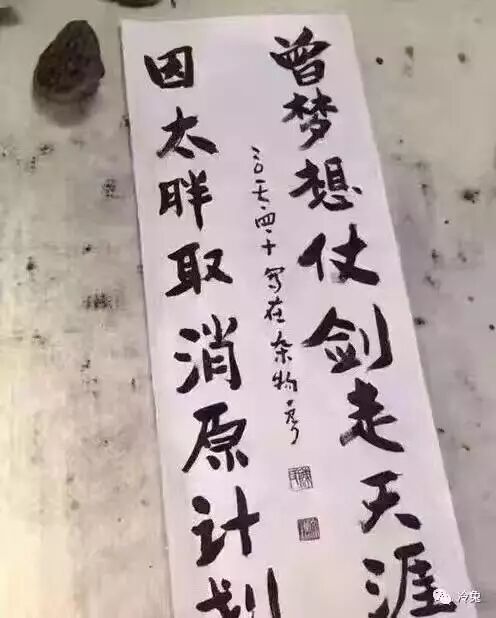 曾梦想仗剑走天涯
因太胖取消原计划
二〇一七·四·十 写在杂物房
冷兔